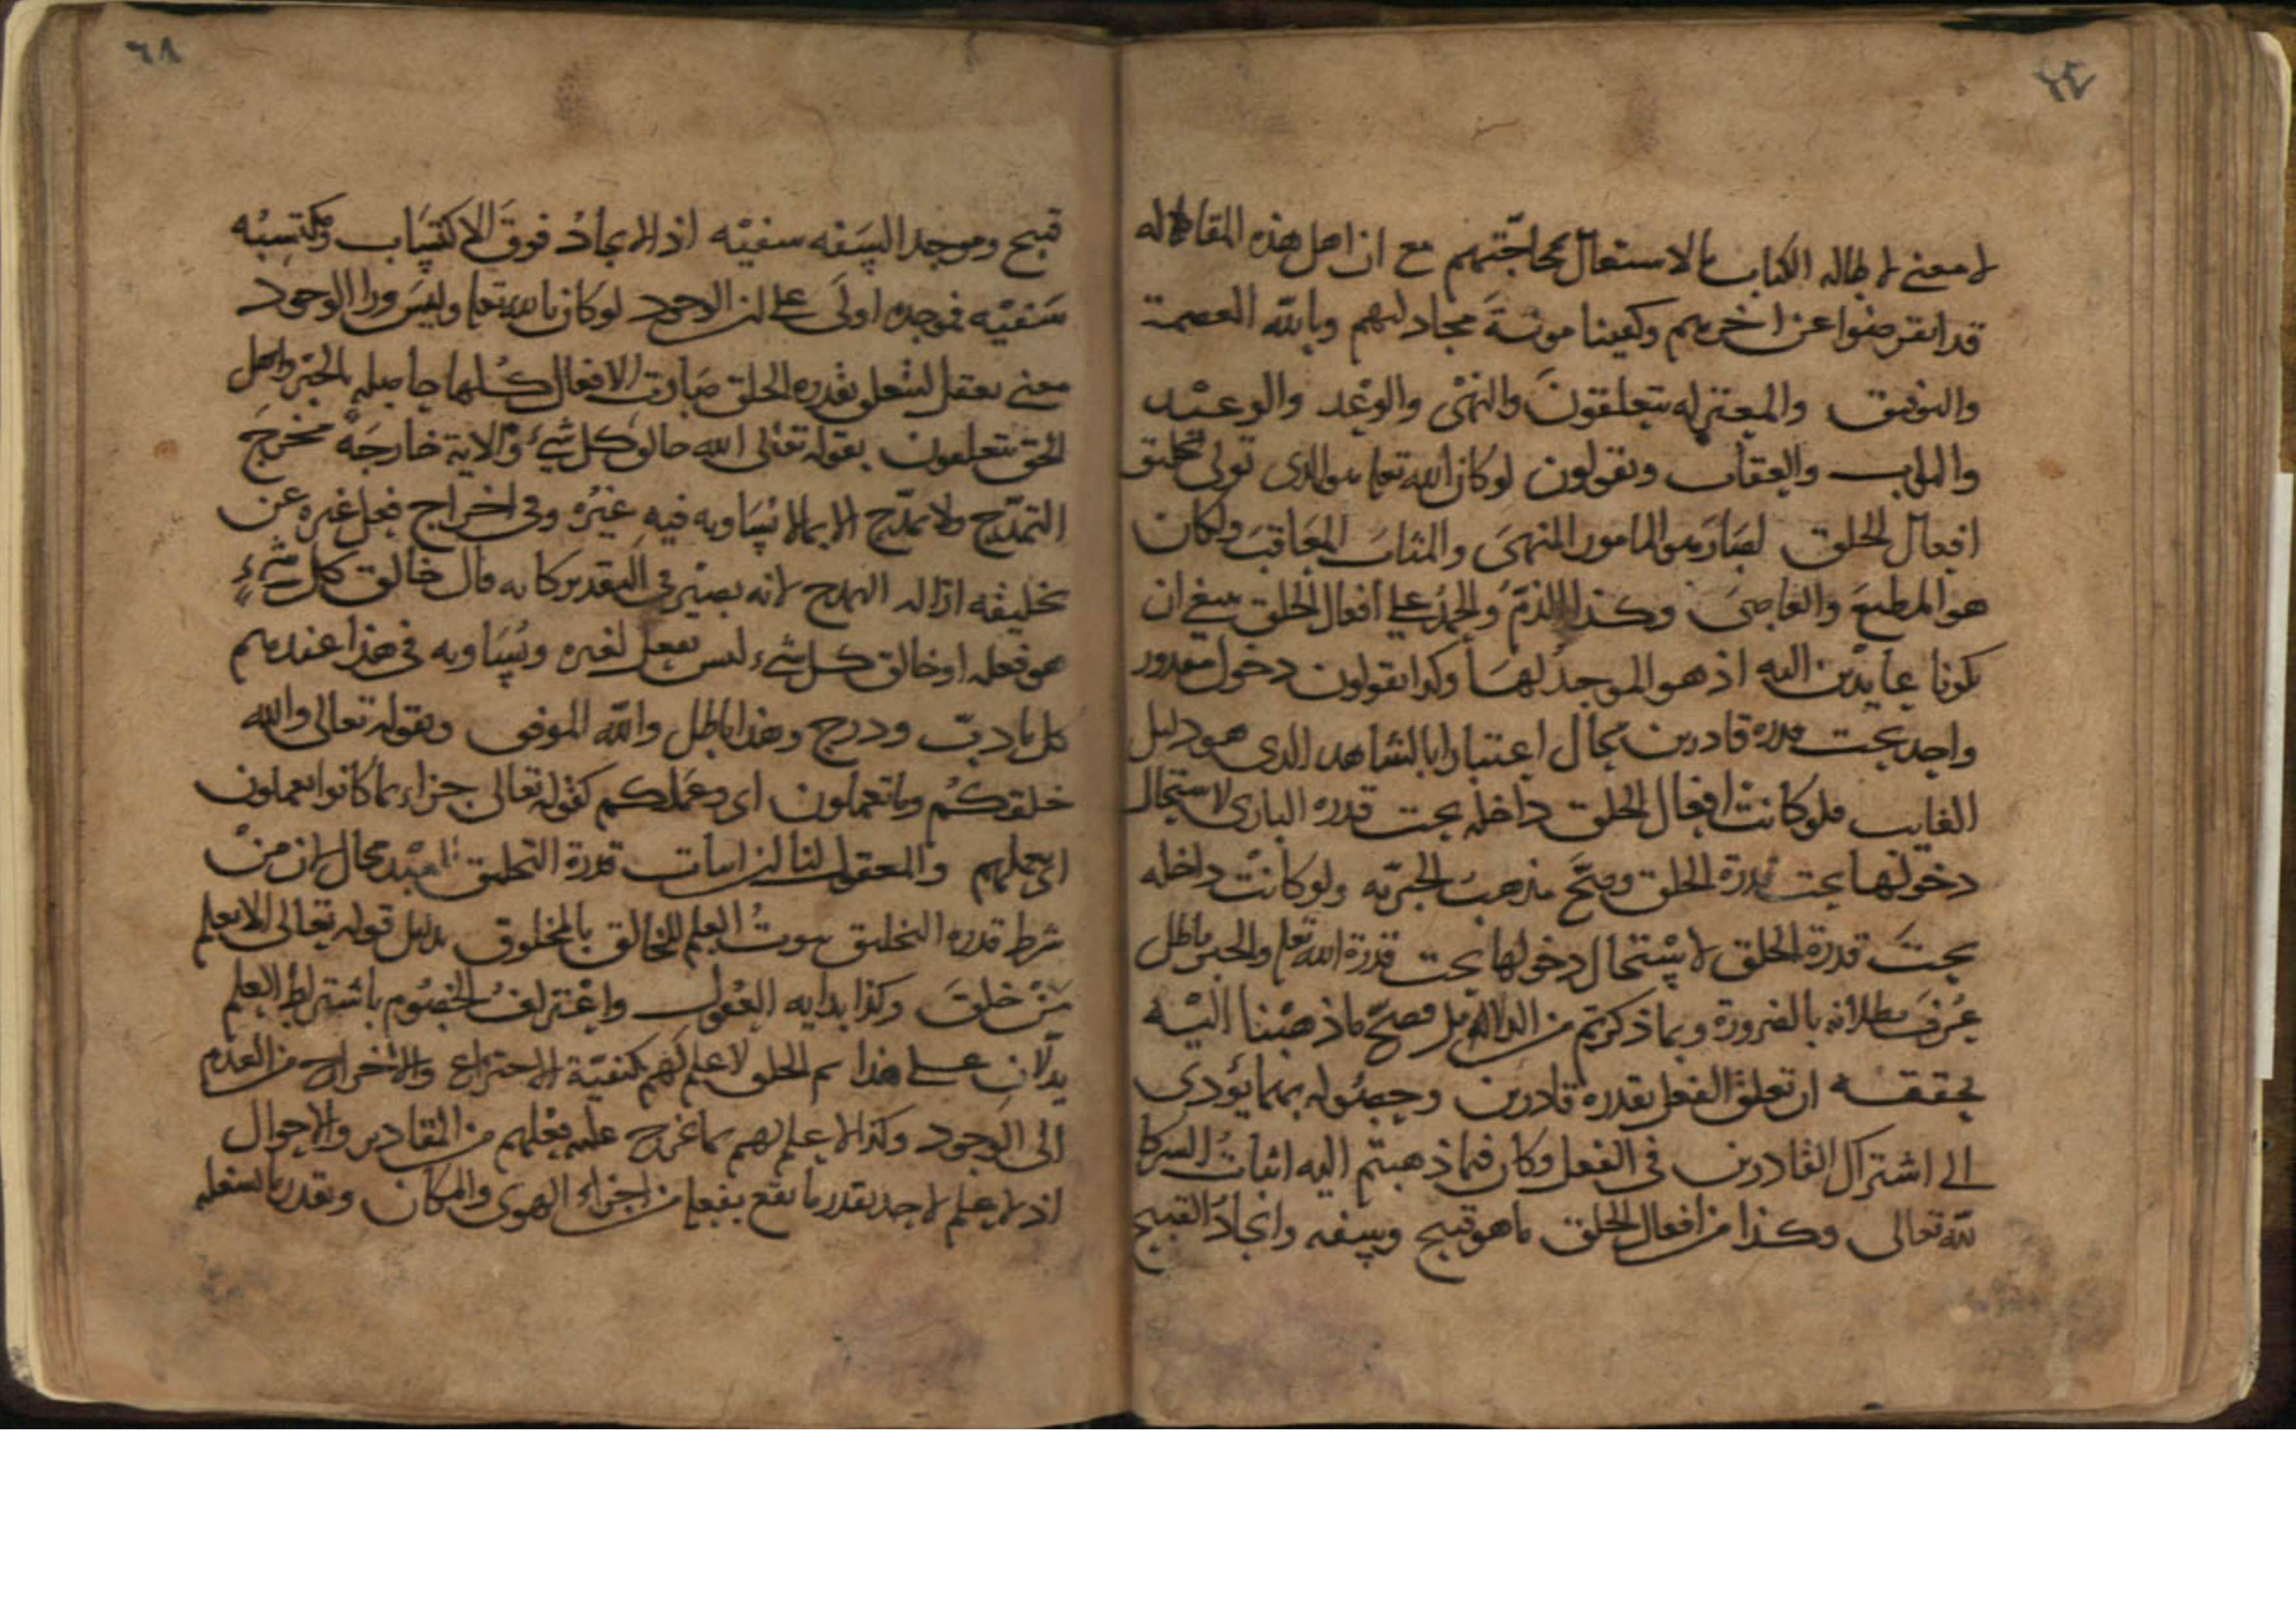 ٦٧
لا معنى لاطاله الكتاب بالاستغال بمحاجّتهم مع ان اهل هذه المقاله
قد انقرضوا عن اخرهم وكفينا مونة مجادلتهم وبالله العصمة
والتوفيق والمعتزله يتعلقون والنهى والوعد والوعيد
والثواب والعقاب ويقولون لو كان الله تعا هو الذى تولى تخليق
افعال الخلق لصار هو المامور المنهى والمثاب المعاقب ولكان
هو المطيع والعاصى وكذا الذم والحمد على افعال الخلق ينبغى ان
يكونا عايدين اليه اذ هو الموجد لها وكذا يقولون دخول مقدور
واحد تحت قدره قادرين محال اعتبارا بالشاهد الذى هو دليل
الغايب فلو كانت افعال الخلق داخله تحت قدره البارى لاستحال
دخولها تحت قدرة الخلق وصح مذهب الجبريه ولو كانت داخله
تحت قدرة الخلق لاستحال دخولها تحت قدرة الله تعا والجبر باطل
عرف بطلانه بالضرورة وبما ذكرتم من الدلايل فصح ما ذهبنا اليه
يحققه ان تعلق الفعل بقدره قادرين وحصوله بهما يؤدى
الى اشتراك القادرين فى الفعل وكان فيما ذهبتم اليه اثبات الشركا
لله تعالى وكذا من افعال الخلق ما هو قبيح وسفه وايجاد القبيح
٦٨
قبيح وموجد السفه سفيه اذ الايجاد فوق الاكتساب ومكتسبه
سفيه فموجده اولى على ان الوجود لو كان بالله تعا وليس ورا الوجود
معنى يعقل لتتعلق بقدره الخلق صارت الافعال كلها حاصله بالجبر واهل
الحق يتعلقون بقوله تعالى الله خالق كل شىء والاية خارجة مخرج
التمدح ولا تمدح الا بما لا يساويه فيه غيره وفى اخراج فعل غيره عن
تخليقه ازاله التمدح لانه يصير فى التقدير كانه قال خالق كل شىء
هو فعله او خالق كل شىء ليس بفعل لغيره ويساويه فى هذا عندهم
كل ما دب ودرج وهذا باطل والله الموفق وبقوله تعالى والله
خلقكم وما تعملون اى وعملكم كقوله تعالى جزاء بما كانوا يعملون
اى بعملهم والمعقول لنا ان اثبات قدرة التخليق للعبد محال لان من
شرط قدره التخليق ثبوت العلم للخالق بالمخلوق بدليل قوله تعالى الا يعلم
من خلق وكذا بدايه العقول واعتراف الخصوم باشتراط العلم
يدلان على هذا ثم الخلق لا علم لهم بكيفية الاختراع والاخراج من العدم
الى الوجود وكذا لا علم لهم بما يخرج عليه فعلهم من المقادير والاحوال
اذ لا علم لاحد بقدر ما يقع بفعله من اجزاء الهوى والمكان وبقدر ما يشغله